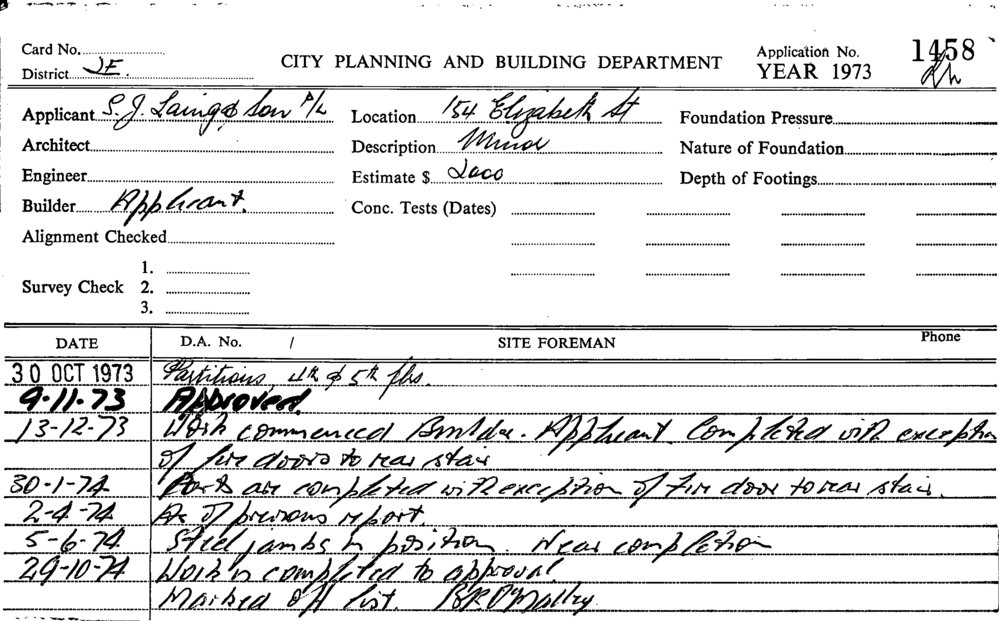 Card No.
District JE.
CITY PLANNING AND BUILDING DEPARTMENT
Application No. 1458
YEAR 1973
Applicant S. J. Laing & Son P/L
Location 154 Elizabeth St
Foundation Pressure
Architect
Description Minor
Nature of Foundation
Engineer
Estimate $ 2000
Depth of Footings
Builder Applicant.
Conc. Tests (Dates)
Alignment Checked
Survey Check 1.
2.
3.
DATE D.A. No. / SITE FOREMAN Phone
30 OCT 1973 Partitions, 4th & 5th flrs.
9-11-73 Approved.
13-12-73 Work commenced Builder - Applicant. Completed with exception
of fire doors to rear stair
30-1-74 are completed with exception of fire door to rear stair.
2-4-74 As of previous report.
5-6-74 Steel jambs in position. Near completion
29-10-74 Work is completed to approval.
Marked off list. O'Malley